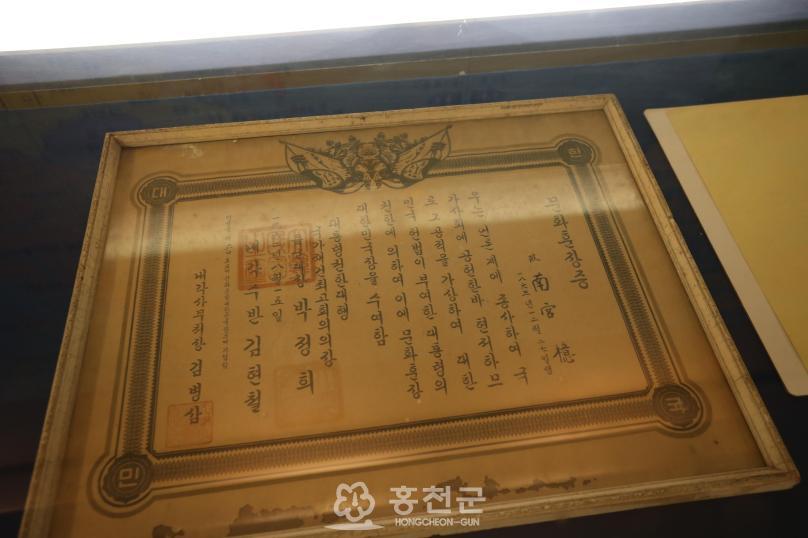 문화훈장증
故 南宮檍
우는 언론계에 종사하여 국
가사회에 공헌한바 현저하므
로 그 공적을 가상하여 대한
민국 헌법이 부여한 대통령의
권한에 의하여 이에 문화훈장
대한민국장을 수여함
대통령권한대행
국가재건최고회의의장
박정희
내각수반 김현철
내각사무처장 김병삼
대
한
민
국
홍천군
HONGCHEON-GUN